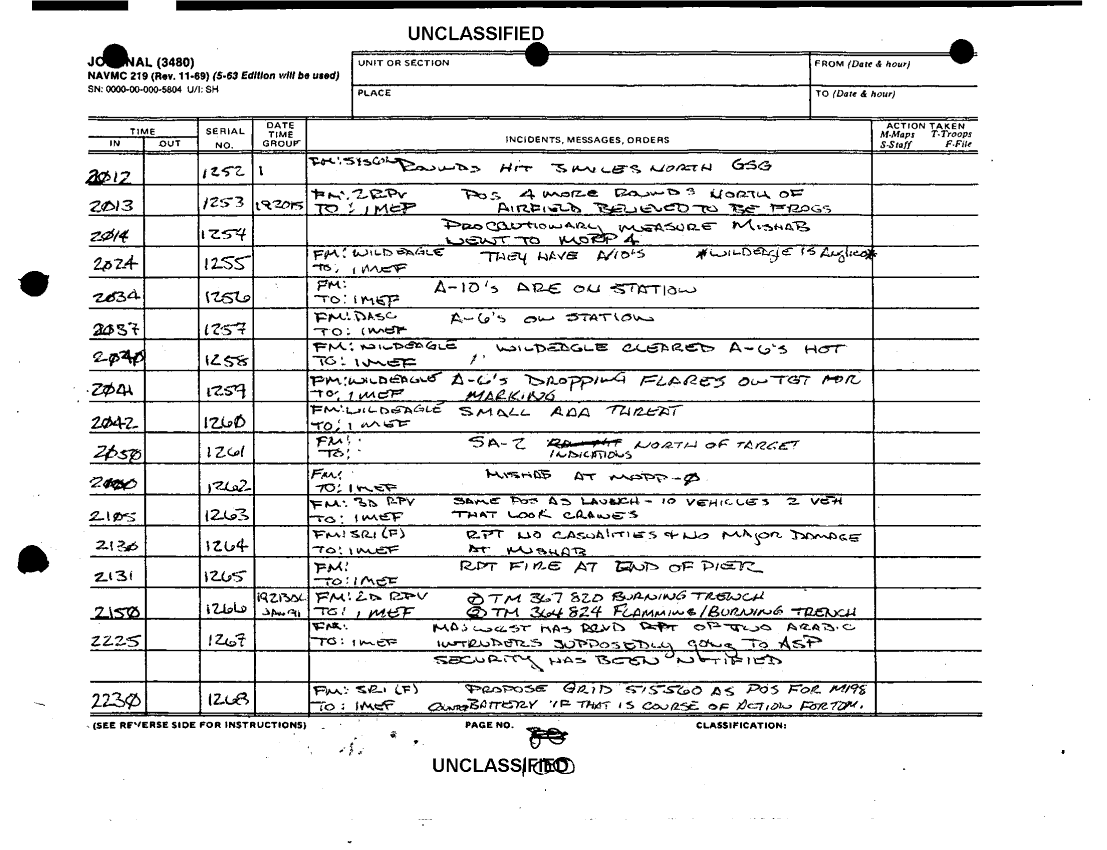 UNCLASSIFIED
JOURNAL (3480)
NAVMC 219 (Rev. 11-69) (5-63 Edition will be used)
SN: 0000-00-000-5804 U/I: SH
UNIT OR SECTION
FROM (Date & hour)
PLACE
TO (Date & hour)
TIME
IN OUT
SERIAL NO.
DATE TIME GROUP
INCIDENTS, MESSAGES, ORDERS
ACTION TAKEN
M-Maps T-Troops
S-Staff F-File
2012 1252 1 FM: ROUNDS HIT 5 MILES NORTH GSG
2013 1253 192015 FM: 2 RPV POS 4 MORE ROUNDS NORTH OF
TO: I MEF AIRFIELD BELIEVED TO BE FROGS
2014 1254 PROCAUTIONARY MEASURE MISHAB
WENT TO MOPP 4
2024 1255 FM: WILDEAGLE THEY HAVE A/10'S *WILDEAGLE IS Anglico*
TO: I MEF
2034 1256 FM: A-10'S ARE ON STATION
TO: I MEF
2037 1257 FM: DASC A-6'S ON STATION
TO: I MEF
2040 1258 FM: WILDEAGLE WILDEAGLE CLEARED A-6'S HOT
TO: I MEF
2041 1259 FM: WILDEAGLE A-6'S DROPPING FLARES ON TGT FOR
TO: I MEF MARKING
2042 1260 FM: WILDEAGLE SMALL AAA THREAT
TO: I MEF
2050 1261 FM: SA-2 NORTH OF TARGET
TO: INDICATIONS
1262 FM: MISHAB AT MOPP-0
TO: I MEF
2105 1263 FM: 3D RPV SAME POS AS LAUNCH - 10 VEHICLES 2 VEH
TO: I MEF THAT LOOK CRANES
2130 1264 FM: SRI (F) RPT NO CASUALITIES & NO MAJOR DAMAGE
TO: I MEF AT MISHAB
2131 1265 FM: RPT FIRE AT END OF PIER
TO: I MEF
2150 1266 192130L JAN 91 FM: 2D RPV ① TM 367 820 BURNING TRENCH
TO: I MEF ② TM 364 824 FLAMMING/BURNING TRENCH
2225 1267 FM: MAJ WEST HAS RCVD RPT OF TWO ARABIC
TO: I MEF INTRUDERS SUPPOSEDLY going TO ASP
SECURITY HAS BEEN NOTIFIED
2230 1268 FM: SRI (F) PROPOSE GRID 515560 AS POS FOR M198
TO: I MEF BATTERY IF THAT IS COURSE OF ACTION FOR TOM.
(SEE REVERSE SIDE FOR INSTRUCTIONS) PAGE NO. CLASSIFICATION:
UNCLASSIFIED